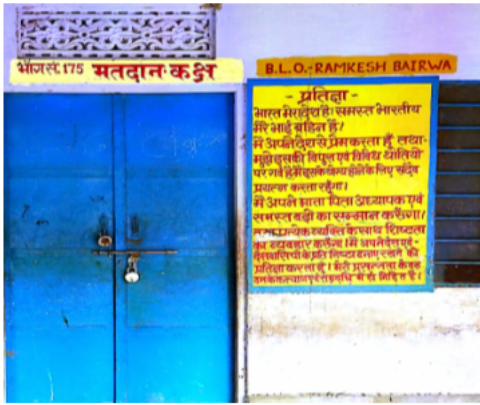 भाग सं. 175 मतदान कक्ष
B.L.O.-RAMKESH BAIRWA
- प्रतिज्ञा -
भारत मेरा देश है। समस्त भारतीय
मेरे भाई बहिन हैं।
मैं अपने देश से प्रेम करता हूँ तथा-
मुझे इसकी विपुल एवं विविध थातियों
पर गर्व है मैं इसके योग्य होने के लिए सदैव
प्रयत्न करता रहूँगा।
मैं अपने माता पिता अध्यापक एवं
समस्त बड़ों का सम्मान करुँगा।
तथा प्रत्येक व्यक्ति के साथ शिष्टता
का व्यवहार करुँगा। मैं अपने देश एवं-
देशवासियों के प्रति निष्ठा बनाए रखने की
प्रतिज्ञा करता हूँ। मेरी प्रसन्नता केवल
उनके कल्याण एवं समृद्धि में ही निहित है।